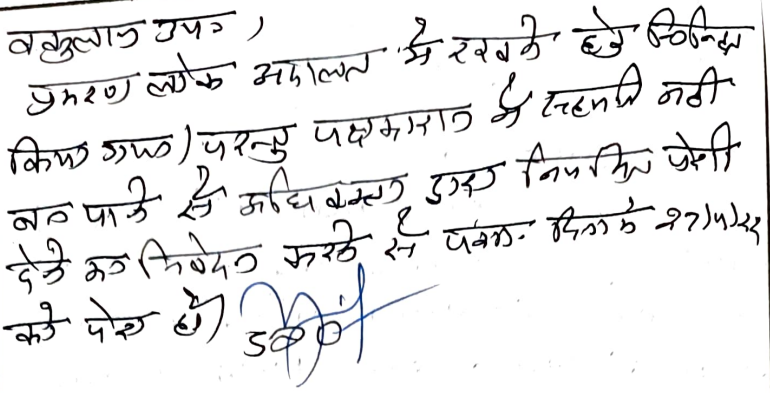 वकुलान उप०,
प्रकरण लोक अदालत में रखने हेतु चिन्हित
किया गया। परन्तु पक्षकारान में सहमति नहीं
बन पाने से अधिवक्ता द्वारा नियमित पेशी
देने का निवेदन करने से पत्रा. दिनांक 27/4/22
को पेश हो।